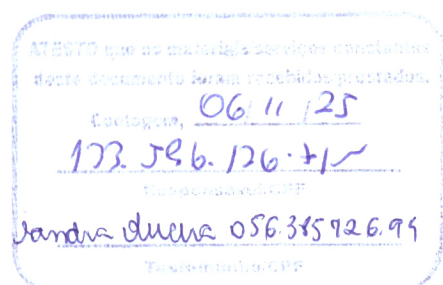 ATESTO que os materiais serviços constantes
deste documento foram recebidos/prestados.
Contagem, 06/11/25
Responsável/CPF
Sandra 056.385726.94
Testemunha/CPF